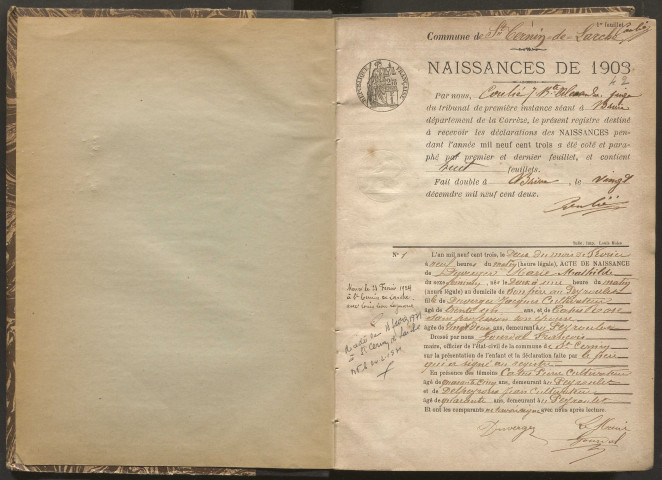 1er feuillet
Commune de St Cernin-de-Larche
NAISSANCES DE 1903
RÉPUBLIQUE FRANÇAISE
Par nous, juge
du tribunal de première instance séant à Brive
département de la Corrèze, le présent registre destiné
à recevoir les déclarations des NAISSANCES pen-
dant l'année mil neuf cent trois a été coté et para-
phé par premier et dernier feuillet, et contient
huit feuillets.
Fait double à Brive, le vingt
décembre mil neuf cent deux.
No 1
L'an mil neuf cent trois, le deux du mois de février
à neuf heures du matin (heure légale), ACTE DE NAISSANCE
de Duverger Marie Mathilde
du sexe féminin, née le deux à une heure du matin
(heure légale) au domicile de son père au Peyroulet
fille de Duverger Jacques Cultivateur
âgé de trente ans, et de
sans profession son épouse
âgée de vingt deux ans, demeurant à Peyroulet
Dressé par nous François
maire, officier de l'état-civil de la commune de St Cernin
sur la présentation de l'enfant et la déclaration faite par le père
qui a signé au registre
En présence des témoins Pierre Cultivateur
âgé de quarante cinq ans, demeurant à Peyroulet
et de Jean Cultivateur
âgé de quarante ans, demeurant à Peyroulet
Et ont les comparants avec nous après lecture.
Duverger
Le Maire